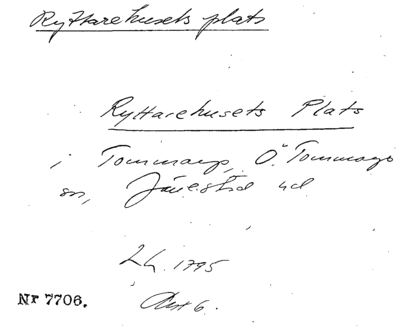 Ryttarehusets plats
Ryttarehusets Plats
i Tommarp, Ö. Tommarps
sn, Järrestad hd
L.h. 1795
Akt 6.
Nr 7706.